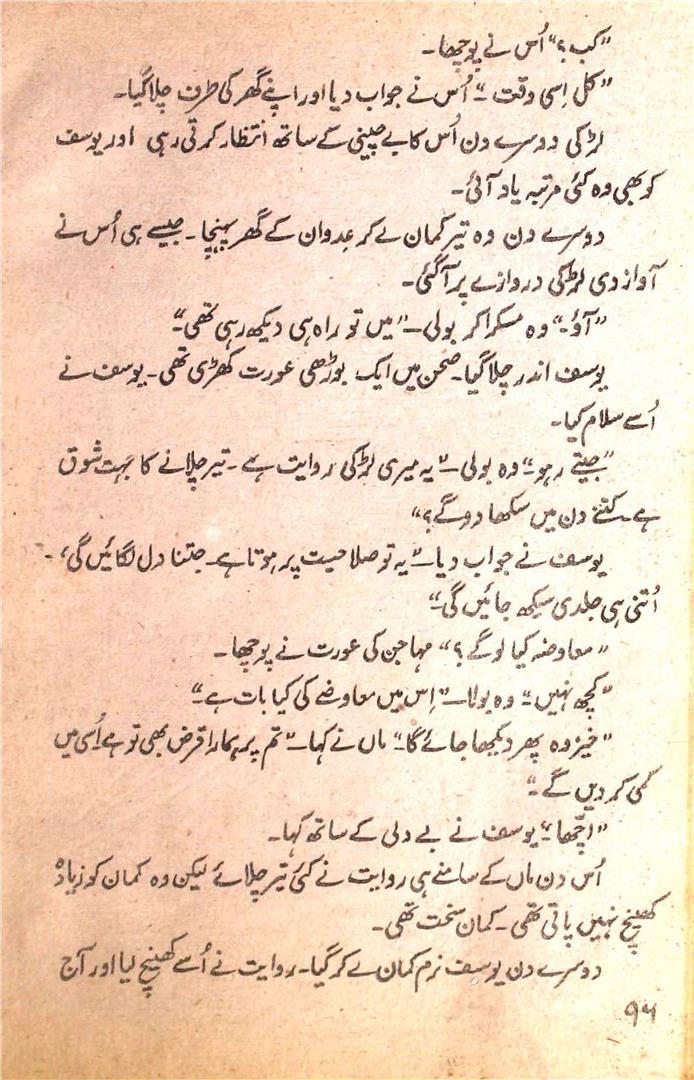 ”کب؟“ اُس نے پوچھا۔
”کل اِسی وقت۔“ اُس نے جواب دیا اور اپنے گھر کی طرف چلا گیا۔
لڑکی دوسرے دن اُس کا بے چینی کے ساتھ انتظار کرتی رہی اور یوسف
کو بھی وہ کئی مرتبہ یاد آئی۔
دوسرے دن وہ تیر کمان لے کر عدوان کے گھر پہنچا۔ جیسے ہی اُس نے
آواز دی لڑکی دروازے پر آ گئی۔
”آؤ۔“ وہ مسکرا کر بولی۔ ”میں تو راہ ہی دیکھ رہی تھی۔“
یوسف اندر چلا گیا۔ صحن میں ایک بوڑھی عورت کھڑی تھی۔ یوسف نے
اُسے سلام کیا۔
”جیتے رہو۔“ وہ بولی۔ ”یہ میری لڑکی روایت ہے۔ تیر چلانے کا بہت شوق
ہے۔ کتنے دن میں سکھا دو گے؟“
یوسف نے جواب دیا۔ ”یہ تو صلاحیت پر ہوتا ہے۔ جتنا دل لگائیں گی،
اُتنی ہی جلدی سیکھ جائیں گی۔“
”معاوضہ کیا لو گے؟“ مہاجن کی عورت نے پوچھا۔
”کچھ نہیں۔“ وہ بولا۔ ”اِس میں معاوضے کی کیا بات ہے۔“
”خیر وہ پھر دیکھا جائے گا۔“ ماں نے کہا۔ ”تم پر ہمارا قرض بھی تو ہے۔ اُسی میں
کمی کر دیں گے۔“
”اچّھا۔“ یوسف نے بے دلی کے ساتھ کہا۔
اُس دن ماں کے سامنے ہی روایت نے کئی تیر چلائے لیکن وہ کمان کو زیادہ
کھینچ نہیں پاتی تھی۔ کمان سخت تھی۔
دوسرے دن یوسف نرم کمان لے کر گیا۔ روایت نے اُسے کھینچ لیا اور آج
۹۶